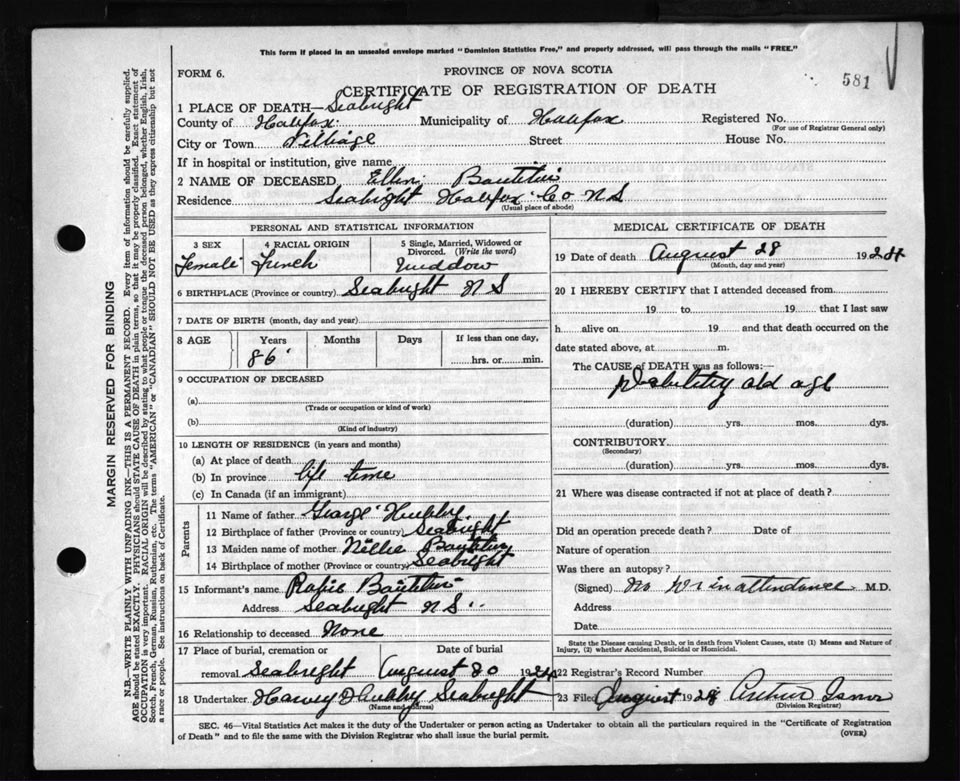 This form if placed in an unsealed envelope marked "Dominion Statistics Free," and properly addressed, will pass through the mails "FREE."
FORM 6.
PROVINCE OF NOVA SCOTIA
581
CERTIFICATE OF REGISTRATION OF DEATH
1 PLACE OF DEATH—Seabright
County of Halifax Municipality of Halifax Registered No.
(For use of Registrar General only)
City or Town Village Street House No.
If in hospital or institution, give name
2 NAME OF DECEASED Ellen
Residence Seabright Halifax Co N S
(Usual place of abode)
PERSONAL AND STATISTICAL INFORMATION
3 SEX 4 RACIAL ORIGIN 5 Single, Married, Widowed or Divorced. (Write the word)
Female French Widdow
6 BIRTHPLACE (Province or country) Seabright N S
7 DATE OF BIRTH (month, day and year)
8 AGE Years Months Days If less than one day,
86 hrs. or min.
9 OCCUPATION OF DECEASED
(a)
(Trade or occupation or kind of work)
(b)
(Kind of industry)
10 LENGTH OF RESIDENCE (in years and months)
(a) At place of death
(b) In province life time
(c) In Canada (if an immigrant)
Parents
11 Name of father George Hubley
12 Birthplace of father (Province or country) Seabright
13 Maiden name of mother Nellie
14 Birthplace of mother (Province or country) Seabright
15 Informant's name
Address Seabright N S
16 Relationship to deceased None
17 Place of burial, cremation or Date of burial
removal Seabright August 30 1924
18 Undertaker Harvey D Hubley Seabright
(Name and address)
MEDICAL CERTIFICATE OF DEATH
19 Date of death August 28 1924
(Month, day and year)
20 I HEREBY CERTIFY that I attended deceased from
19 to 19 that I last saw
h alive on 19 and that death occurred on the
date stated above, at m.
The CAUSE of DEATH was as follows:—
Debility old age
(duration) yrs. mos. dys.
CONTRIBUTORY
(Secondary)
(duration) yrs. mos. dys.
21 Where was disease contracted if not at place of death?
Did an operation precede death? Date of
Nature of operation
Was there an autopsy?
(Signed) No Dr in attendance M.D.
Address
Date
State the Disease causing Death, or in death from Violent Causes, state (1) Means and Nature of
Injury, (2) whether Accidental, Suicidal or Homicidal.
22 Registrar's Record Number
23 Filed August 1928 Arthur
(Division Registrar)
SEC. 46—Vital Statistics Act makes it the duty of the Undertaker or person acting as Undertaker to obtain all the particulars required in the "Certificate of Registration
of Death" and to file the same with the Division Registrar who shall issue the burial permit.
(OVER)
MARGIN RESERVED FOR BINDING
N.B.—WRITE PLAINLY WITH UNFADING INK—THIS IS A PERMANENT RECORD. Every item of information should be carefully supplied.
AGE should be stated EXACTLY. PHYSICIANS should STATE CAUSE OF DEATH in plain terms, so that it may be properly classified. Exact statement of
OCCUPATION is very important. RACIAL ORIGIN will be described by stating to what people or tongue the deceased person belonged, whether English, Irish,
Scotch, French, German, Russian, Ruthenian, etc. The terms "AMERICAN" or "CANADIAN" SHOULD NOT BE USED as they express citizenship but not
a race or people. See instructions on back of Certificate.